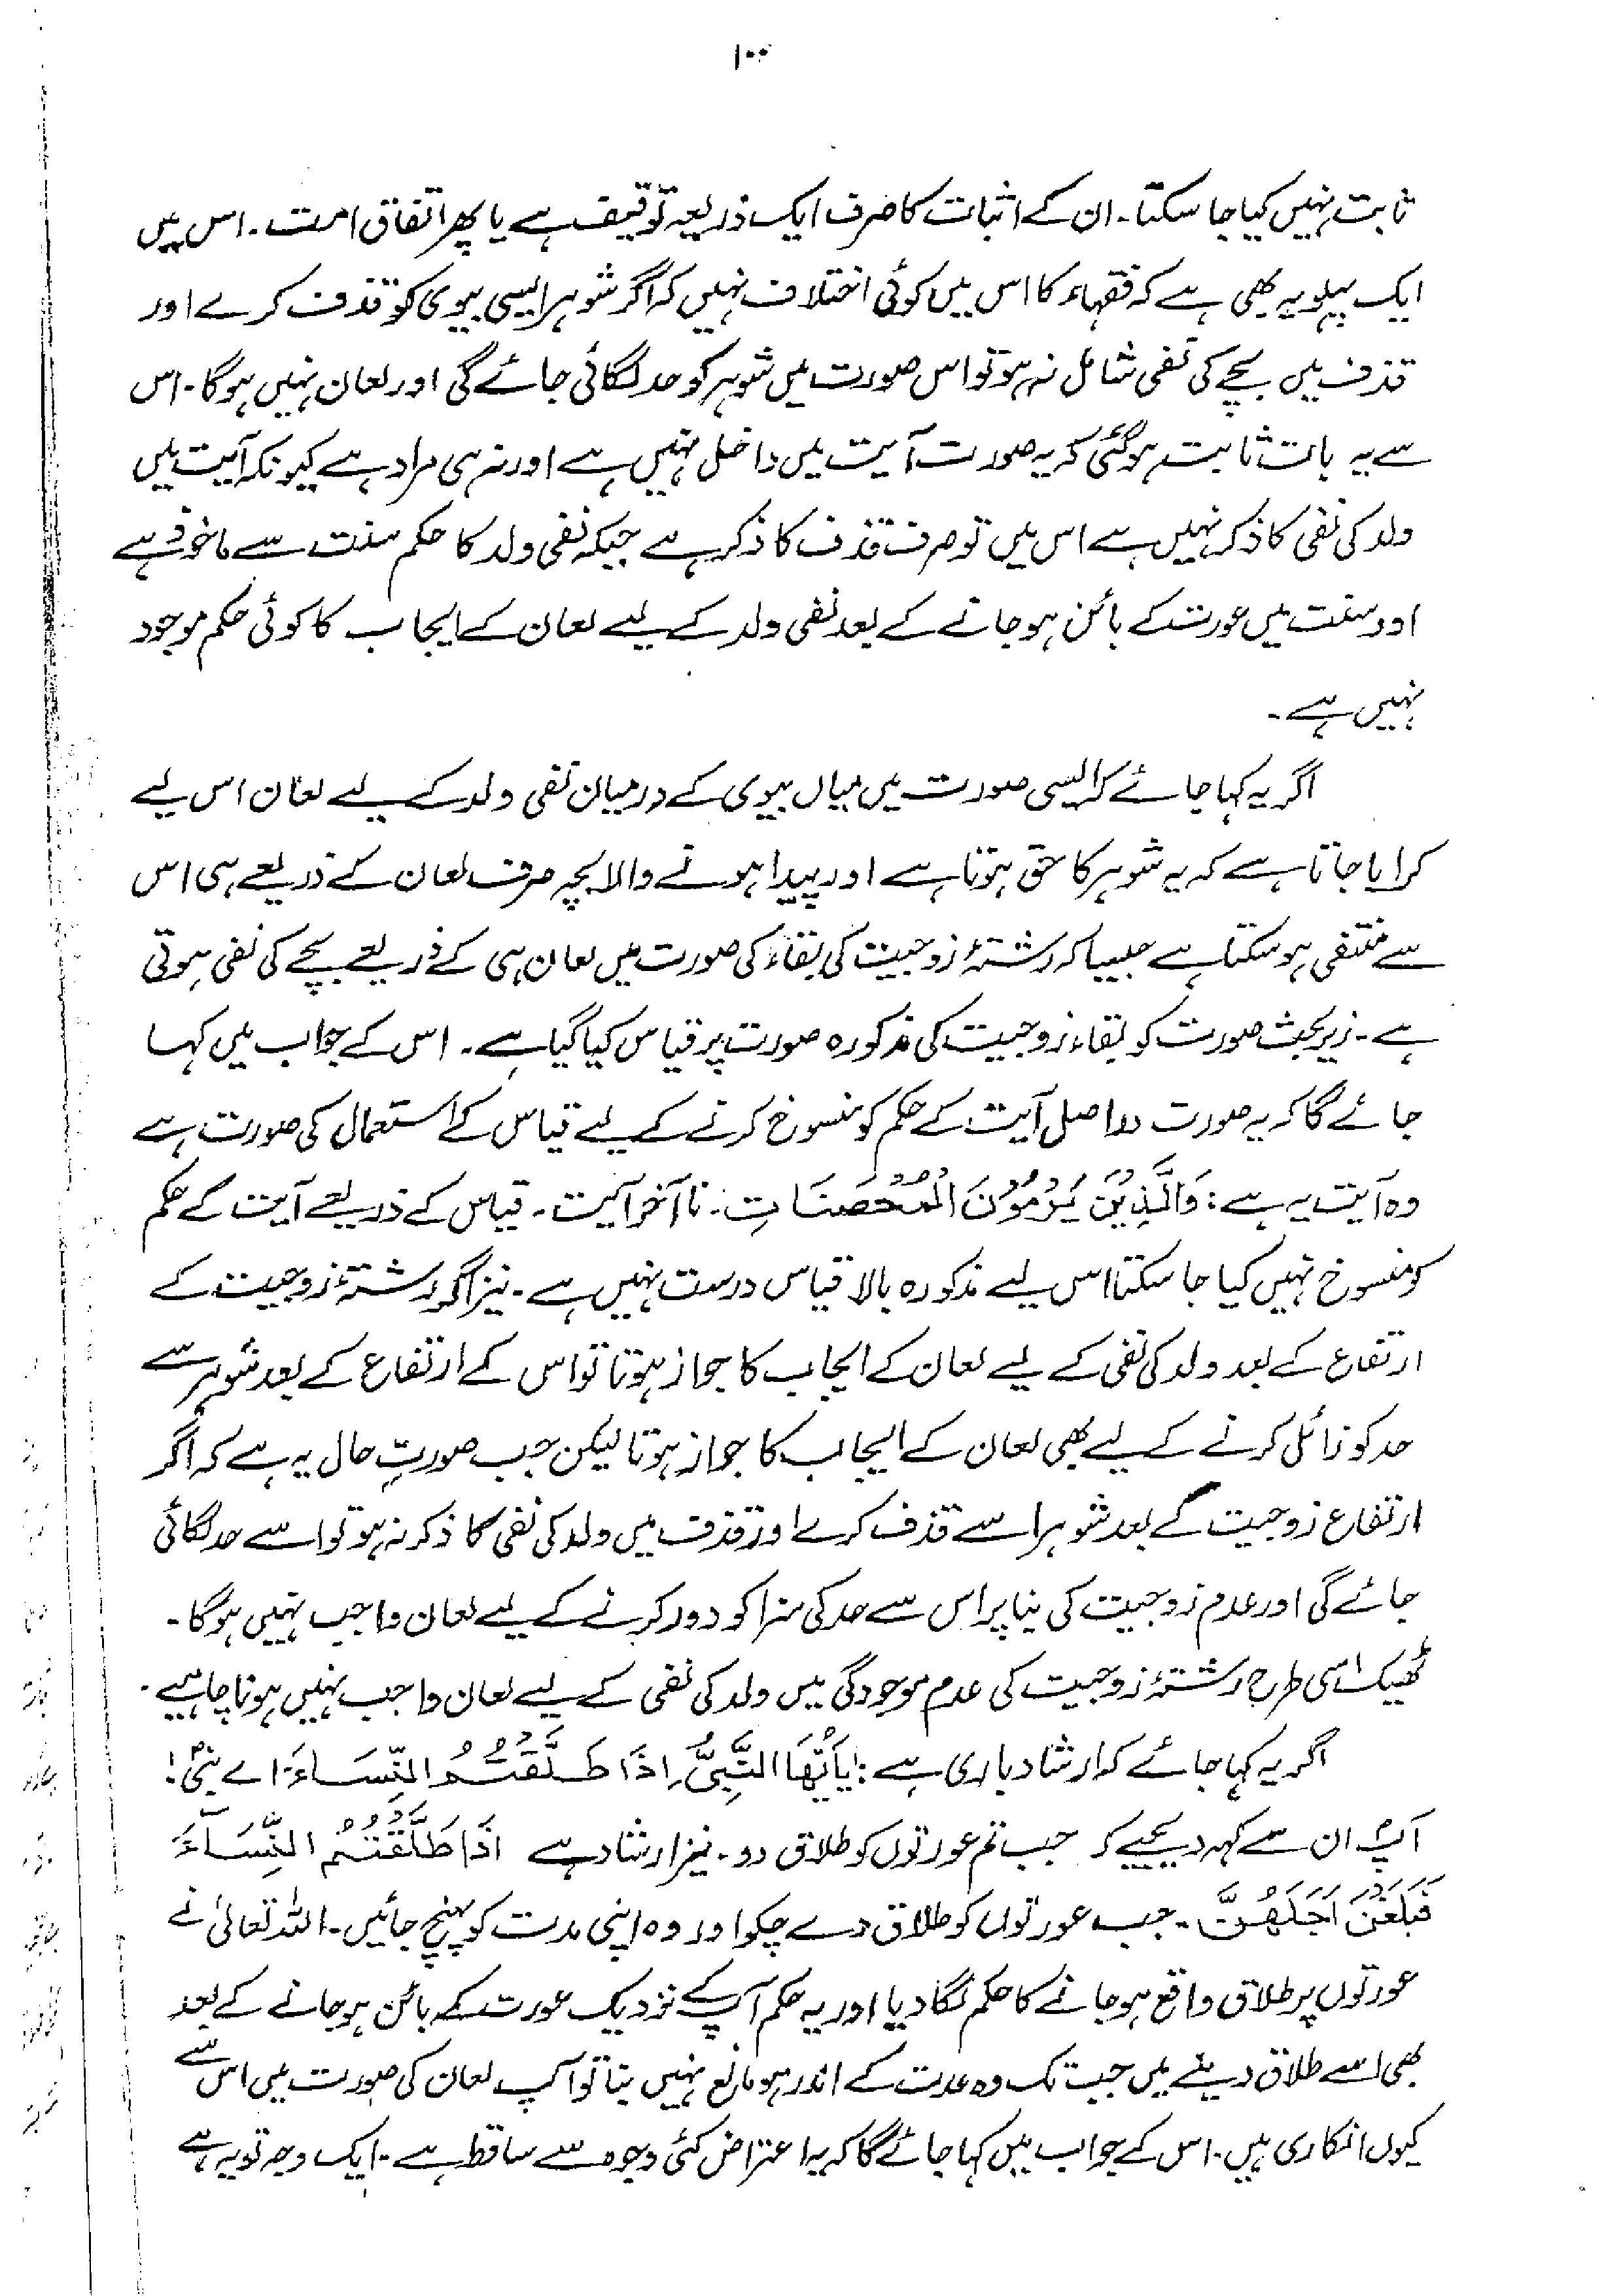 ۱۰۰
ثابت نہیں کیا جا سکتا۔ ان کے اثبات کا صرف ایک ذریعہ توقیف ہے یا پھر اتفاق امت۔ اس میں
ایک پہلو یہ بھی ہے کہ فقہاء کا اس میں کوئی اختلاف نہیں کہ اگر شوہر ایسی بیوی کو قذف کرے اور
قذف میں بچے کی نفی شامل نہ ہو تو اس صورت میں شوہر کو حد لگائی جائے گی اور لعان نہیں ہوگا۔ اس
سے یہ بات ثابت ہوگئی کہ یہ صورت آیت میں داخل نہیں ہے اور نہ ہی مراد ہے کیونکہ آیت میں
ولد کی نفی کا ذکر نہیں ہے اس میں تو صرف قذف کا ذکر ہے جبکہ نفی ولد کا حکم سنت سے ماخوذ ہے
اور سنت میں عورت کے بائن ہو جانے کے بعد نفی ولد کے لیے لعان کے ایجاب کا کوئی حکم موجود
نہیں ہے۔
اگر یہ کہا جائے کہ ایسی صورت میں میاں بیوی کے درمیان نفی ولد کے لیے لعان اس لیے
کرایا جاتا ہے کہ یہ شوہر کا حق ہوتا ہے اور پیدا ہونے والا بچہ صرف لعان کے ذریعے ہی اس
سے منتفی ہو سکتا ہے جیسا کہ رشتۂ زوجیت کی بقاء کی صورت میں لعان ہی کے ذریعے بچے کی نفی ہوتی
ہے۔ زیر بحث صورت کو بقاء زوجیت کی مذکورہ صورت پر قیاس کیا گیا ہے۔ اس کے جواب میں کہا
جائے گا کہ یہ صورت دراصل آیت کے حکم کو منسوخ کرنے کے لیے قیاس کے استعمال کی صورت ہے
وہ آیت یہ ہے: وَالَّذِیْنَ یَرْمُوْنَ الْمُحْصَنَاتِ۔ تا آخر آیت۔ قیاس کے ذریعے آیت کے حکم
کو منسوخ نہیں کیا جا سکتا اس لیے مذکورہ بالا قیاس درست نہیں ہے۔ نیز اگر رشتۂ زوجیت کے
ارتفاع کے بعد ولد کی نفی کے لیے لعان کے ایجاب کا جواز ہوتا تو اس کے ارتفاع کے بعد شوہر سے
حد کو زائل کرنے کے لیے بھی لعان کے ایجاب کا جواز ہوتا لیکن جب صورتِ حال یہ ہے کہ اگر
ارتفاع زوجیت کے بعد شوہر اسے قذف کرے اور قذف میں ولد کی نفی کا ذکر نہ ہو تو اسے حد لگائی
جائے گی اور عدم زوجیت کی بنا پر اس سے حد کی سزا کو دور کرنے کے لیے لعان واجب نہیں ہوگا۔
ٹھیک اسی طرح رشتۂ زوجیت کی عدم موجودگی میں ولد کی نفی کے لیے لعان واجب نہیں ہونا چاہیے۔
اگر یہ کہا جائے کہ ارشاد باری ہے: یٰاَیُّهَا النَّبِیُّ اِذَا طَلَّقْتُمُ النِّسَاءَ، اے نبیؐ!
آپؐ ان سے کہہ دیجیے کہ جب تم عورتوں کو طلاق دو۔ نیز ارشاد ہے اِذَا طَلَّقْتُمُ النِّسَآءَ
فَبَلَغْنَ اَجَلَهُنَّ۔ جب عورتوں کو طلاق دے چکو اور وہ اپنی مدت کو پہنچ جائیں۔ اللہ تعالیٰ نے
عورتوں پر طلاق واقع ہو جانے کا حکم لگا دیا اور یہ حکم آپ کے نزدیک عورت کے بائن ہو جانے کے بعد
بھی اسے طلاق دینے میں جب تک وہ عدت کے اندر ہو مانع نہیں بنتا تو آپ لعان کی صورت میں اس سے
کیوں انکاری ہیں۔ اس کے جواب میں کہا جائے گا کہ یہ اعتراض کئی وجوہ سے ساقط ہے۔ ایک وجہ تو یہ ہے